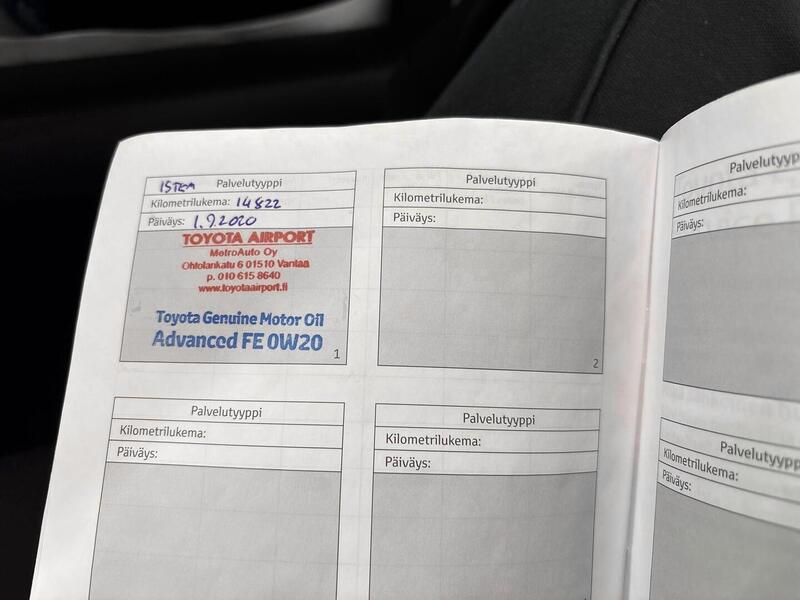 15TKM Palvelutyyppi
Kilometrilukema: 14822
Päiväys: 1.9.2020
TOYOTA AIRPORT
MetroAuto Oy
Ohtolankatu 6 01510 Vantaa
p. 010 615 8640
www.toyotaairport.fi
Toyota Genuine Motor Oil
Advanced FE 0W20
1
Palvelutyyppi
Kilometrilukema:
Päiväys:
2
Palvelutyyppi
Kilometrilukema:
Päiväys:
Palvelutyyppi
Kilometrilukema:
Päiväys:
Palvelutyyp
Kilometrilukema:
Päiväys:
Palvelutyypp
Kilometrilukema:
Päiväys: